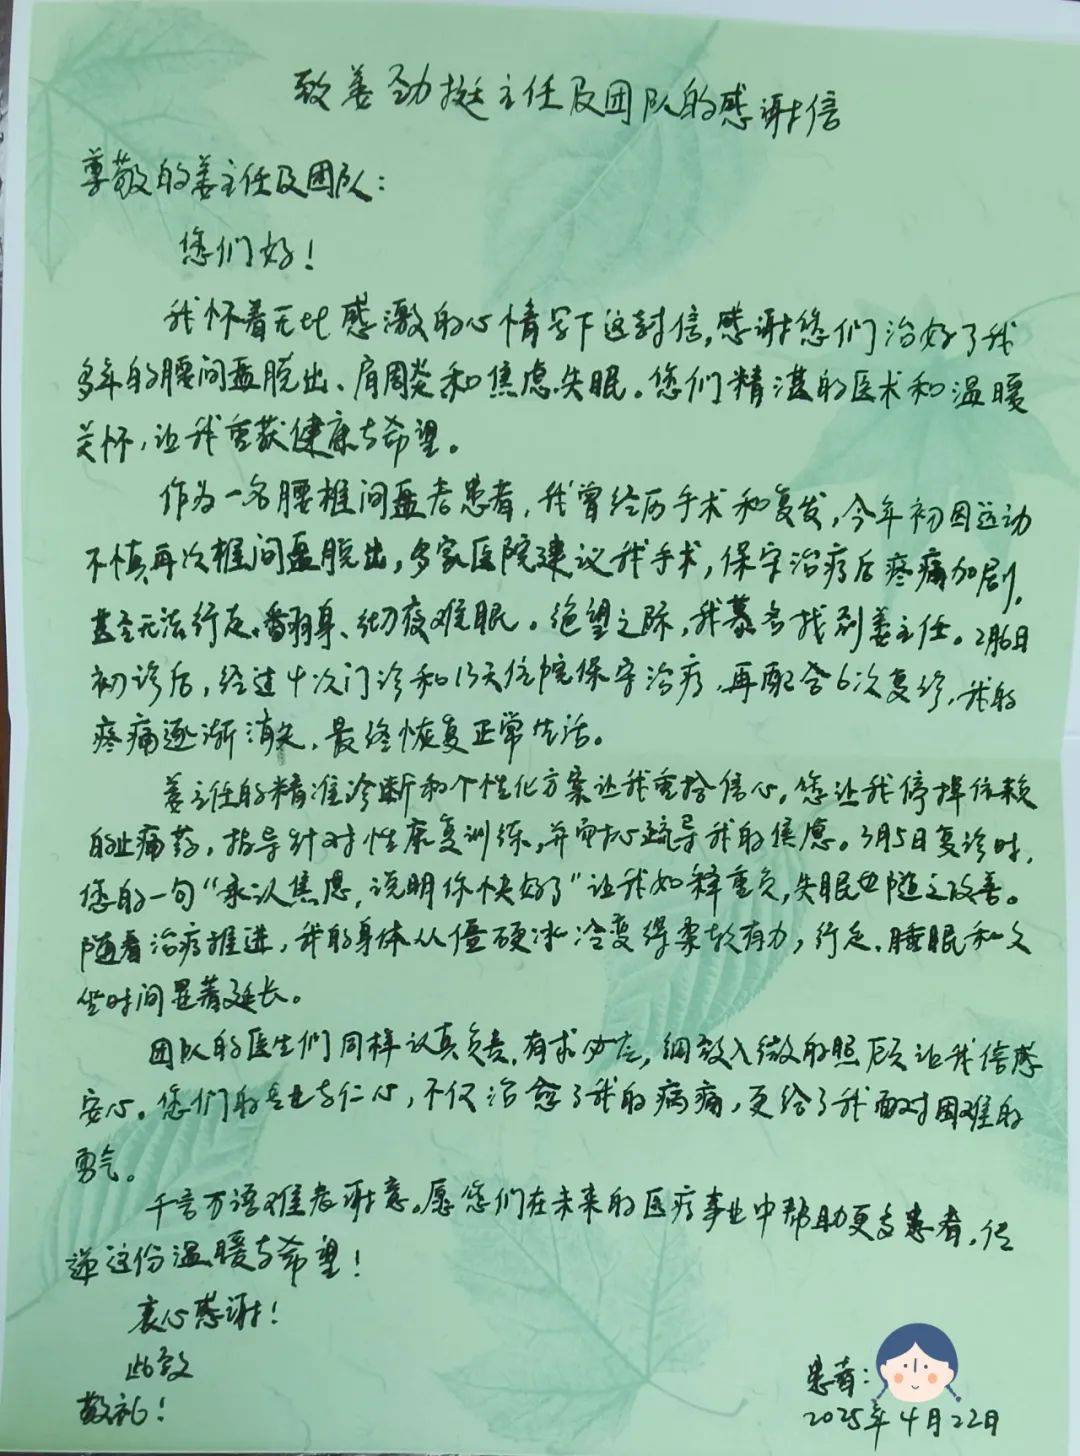 致姜劲挺主任及团队的感谢信
尊敬的姜主任及团队：
您们好！
我怀着无比感激的心情写下这封信，感谢您们治好了我
多年的腰间盘脱出、肩周炎和焦虑失眠。您们精湛的医术和温暖
关怀，让我重获健康与希望。
作为一名腰椎间盘老患者，我曾经历手术和复发，今年初因运动
不慎再次椎间盘脱出，多家医院建议我手术，保守治疗后疼痛加剧，
甚至无法行走、翻身、彻夜难眠。绝望之际，我慕名找到姜主任。2月6日
初诊后，经过十次门诊和13天住院保守治疗，再配合6次复诊，我的
疼痛逐渐消失，最终恢复正常生活。
姜主任的精准诊断和个性化方案让我重拾信心。您让我停掉依赖
的止痛药，指导针对性康复训练，并耐心疏导我的焦虑。3月5日复诊时，
您的一句“承认焦虑，说明你快好了”让我如释重负，失眠也随之改善。
随着治疗推进，我的身体从僵硬冰冷变得柔软有力，行走、睡眠和久
坐时间显著延长。
团队的医生们同样认真负责，有求必应，细致入微的照顾让我倍感
安心。您们的医者仁心，不仅治愈了我的病痛，更给了我面对困难的
勇气。
千言万语难表谢意。愿您们在未来的医疗事业中帮助更多患者，传
递这份温暖与希望！
衷心感谢！
此致
敬礼！
患者：
2025年4月22日